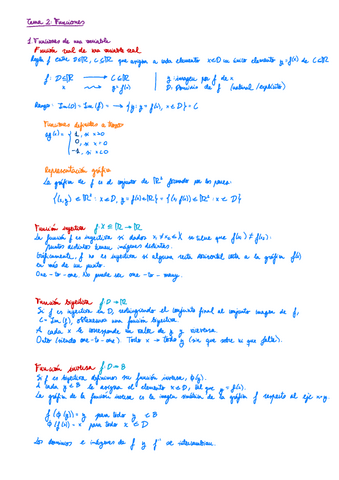 Tema 2: Funciones
1. Funciones de una variable
Función real de una variable real
Regla f entre D⊆ℝ, C⊆ℝ que asigna a cada elemento x∈D un único elemento y=f(x) de C⊆ℝ
f: D⊆ℝ → C⊆ℝ y: imagen por f de x
x → y=f(x) D: Dominio de f (natural/explícito)
Rango: Im(D) = Im(f) = → {y: y = f(x), x∈D} = C
Funciones definidas a trozos
sg(x) = { 1, si x>0
0, si x=0
-1, si x<0
Representación gráfica
La gráfica de f es el conjunto de ℝ² formado por los pares:
{(x,y) ∈ ℝ² : x∈D, y=f(x)∈ℝ} = {(x, f(x)) ∈ ℝ² : x∈D}
Función inyectiva f: X⊆ℝ → ℝ
La función f es inyectiva si dados x₁≠x₂∈X se tiene que f(x₁) ≠ f(x₂):
puntos distintos tienen imágenes distintas.
Gráficamente, f no es inyectiva si alguna recta horizontal corta a la gráfica f(x)
en más de un punto.
One-to-one. No puede ser one-to-many.
Función biyectiva f: D → ℝ
Si f es inyectiva en D, restringiendo el conjunto final al conjunto imagen de f,
C = Im(f), obtenemos una función biyectiva.
A cada x le corresponde un valor de y y viceversa.
Onto (siendo one-to-one). Todo x → todo y (sin que sobre ni que falte).
Función inversa f: D → B
Si f es biyectiva definimos su función inversa, Φ(y).
A cada y∈B le asigna el elemento x∈D, tal que y = f(x).
La gráfica de la función inversa es la imagen simétrica de la gráfica f respecto al eje x=y.
f(Φ(y)) = y para todo y ∈ B
Φ(f(x)) = x para todo x ∈ D
Los dominios e imágenes de f y f⁻¹ se intercambian.